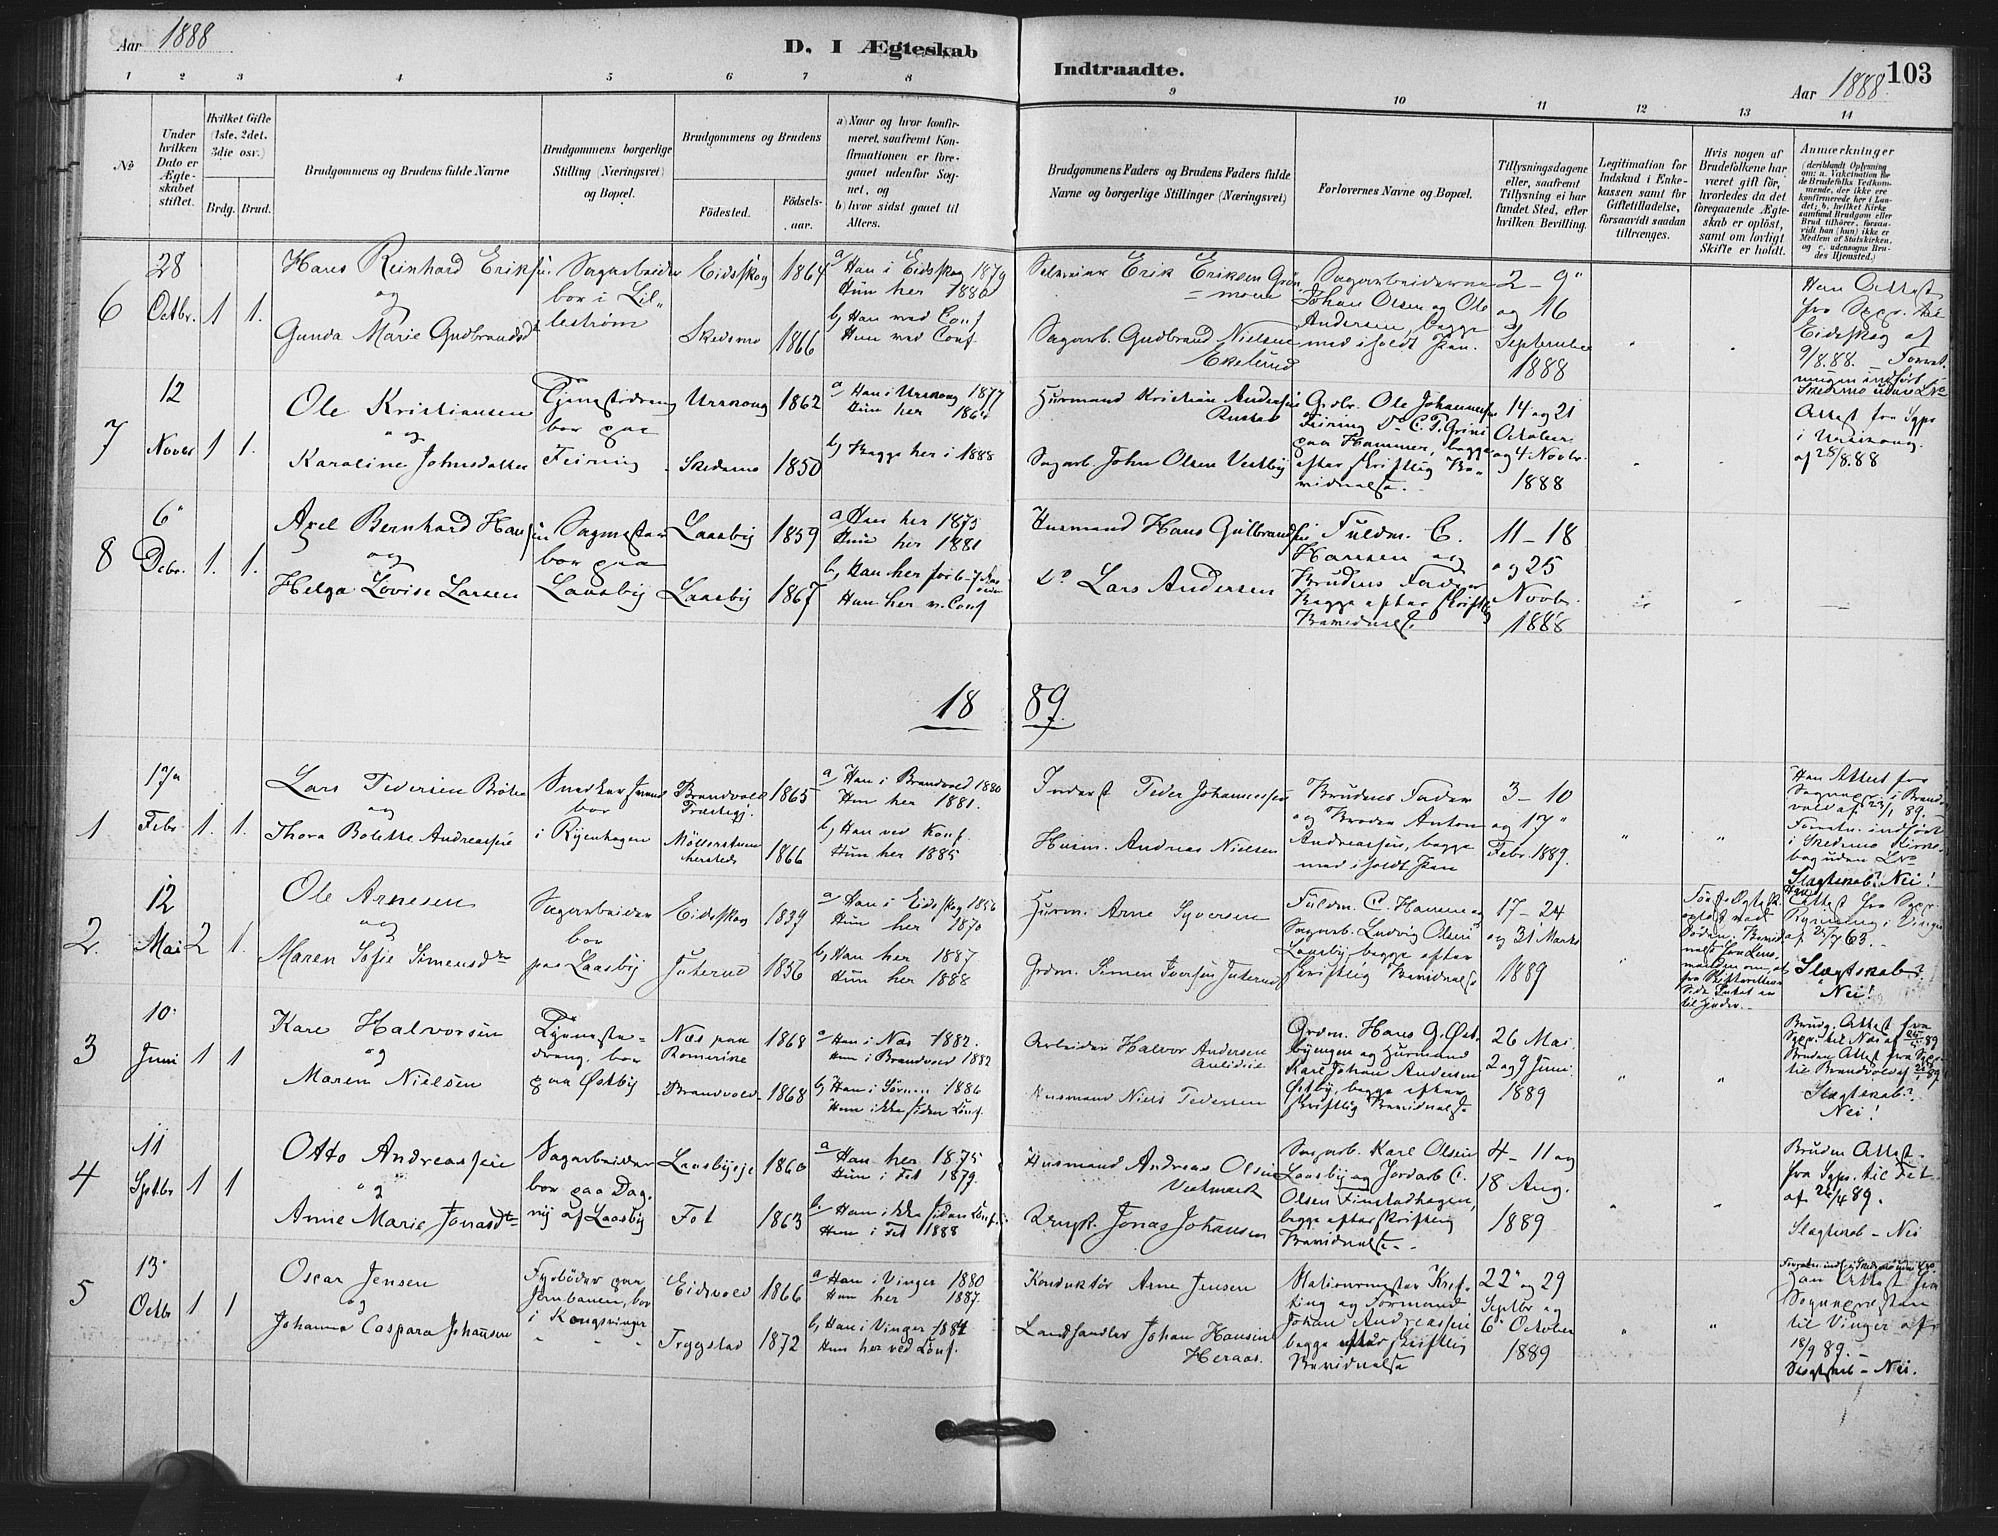 Aar 1888
D. I Ægteskab
Indtraadte.
Aar 1888.
103
1 2 3 4 5 6 7 8 9 10 11 12 13 14
No.
Under hvilken Dato er Ægteskabet stiftet.
Hvilket Gifte (1ste, 2det, 3die osv.)
Brdg. Brud.
Brudgommens og Brudens fulde Navne
Brudgommens borgerlige Stilling (Næringsvei) og Bopæl.
Brudgommens og Brudens
Födested.
Födselsaar.
a) Naar og hvor konfirmeret, saafremt Konfirmationen er foregaaet udenfor Sognet, og
b) hvor sidst gaaet til Alters.
Brudgommens Faders og Brudens Faders fulde Navne og borgerlige Stillinger (Næringsvei)
Forlovernes Navne og Bopæl.
Tillysningsdagene eller, saafremt Tillysning ei har fundet Sted, efter hvilken Bevilling.
Legitimation for Indskud i Enkekassen samt for Giftetilladelse, forsaavidt saadan tiltrænges.
Hvis nogen af Brudefolkene har været gift för, hvorledes da det foregaaende Ægteskab er oplöst, samt om lovligt Skifte er holdt.
Anmærkninger
6
28
Octbr.
1 1.
Hans Reinhard Eriksen
og
Gunda Marie Gudbrandsd.
Sagarbeider
bor i Lil-
leström
Eidskog 1864
Skedsmo 1866
a/ Han i Eidskog 1879
Hun her 1880
b, Han ved Conf
Hun ved Conf.
Selveier Erik Eriksen Grön-
moen
Sagarb. Gudbrand Nielsen
Ekelund
Sagarbeiderne
Johan Olsen og Ole
Andersen, begge
med iholdt Pen.
2 - 9
og 16
September
1888
Han Attest
fra Sgpr. til
Eidskog af
9/8.88.
7
12
Novbr
1 1.
Ole Kristiansen
og
Karoline Johnsdatter
Tjenestedreng
bor paa
Feiring
Urskoug 1862
Skedsmo 1850
a/ Han i Urskoug 1877
Hun her 1864
b/ Begge her i 1888
Husmand Kristian Andersen
Rustad
Sagarb. John Olsen Vestby
Grdbr. Ole Johannesen
Feiring
paa Hammer, begge
efter skriftlig Be-
vidnelse.
14 og 21
October
og 4 Novbr.
1888
Attest fra Sgpr
i Urskoug
af 25/8.88
8
6
Dcbr.
1. 1.
Axel Bernhard Hansen
og
Helga Lovise Larsen
Sagmester
bor paa
Laasby
Laasby 1859
Laasby 1867
a Han her 1875
Hun her 1881
b, Han her for 6-7 Aar
siden
Hun her v. Conf
Husmand Hans Gulbrandsen
Do Lars Andersen
Fuldm. C.
Hansen og
Brudens Fader
Begge efter skriftlig
Bevidnelse
11 - 18
og 25
Novbr.
1888
18 89
1.
17
Febr.
1. 1.
Lars Pedersen Bröten
og
Thora Bolette Andreassen
Snedkersvend
bor
i Ryenhagen
Brandvold 1865
1866
a/ Han i Brandvold 1880
Hun her 1881.
b, Han ved Konf.
Hun her 1885
Inderst Peder Johannessen
Husm. Andreas Nielsen
Brudens Fader
og Broder Anton
Andreassen, begge
med iholdt Pen
3 - 10
og 17
Febr. 1889.
Han Attest fra
Sognepr. i Brand-
vold af 23/1 89.
Forretn. indfört
i Skedsmo Kirke-
bog uden No
Slægtskab? Nei!
2.
12
Mai
2 1.
Ole Arnesen
og
Maren Sofie Simensdtr
Sagarbeider
bor
paa Laasby
Eidskog 1839
Juterud 1856
a/ Han i Eidskog 1856
Hun her 1870
b, Han her 1887
Hun her 1888
Husm. Arne Syversen
Grdm. Simen Iversen Juterud
Fuldm. C. Hammer
Sagarb. Ludvig Olsen
Laasby, begge efter
skriftlig Bevidnelse
17 - 24
og 31 Marts
1889
Slægtskab?
Nei!
3
10
Juni
1 1
Kare Halvorsen
og
Maren Nielsen
Tjeneste-
dreng, bor
paa Östby
Næs paa
Romerike 1868
Brandvold 1868
a/ Han i Næs 1882.
Hun i Brandvold 1882
b/ Han i Sörum 1886
Hun ikke siden Conf.
Arbeider Halvor Andersen
Husmand Niels Pedersen
Grdm. Hans G. Öst-
byengen og Husmand
Karl Johan Andersen
Östby, begge efter
skriftlig Bevidnelse
26 Mai.
2 og 9 Juni.
1889
Brudg. Attest fra
Sgpr. til Næs af
Bruden Attest fra Sgpr.
til Brandvold af
Slægtskab?
Nei!
4
11
Sptbr
1 1
Otto Andreassen
og
Anne Marie Jonasdtr
Sagarbeider
bor paa Dag-
nij af Laasby
Laasbyeje 1860
Fet 1863
a Han her 1875
Hun i Fet 1879.
b. Han ikke siden Conf.
Hun i Fet 1888
Husmand Andreas Olsen
Vestmark
Jonas Johansen
Sagarb. Karl Olsen
Laasby og Jordarb C.
Olsen Finstadhagen,
begge efter skriftlig
Bevidnelse.
4 - 11 og
18 Aug.
1889
Bruden Attest
fra Sgpr. til Fet
af 26/4 89.
Slægtskab - Nei
5
13
Octbr
1 1
Oscar Jensen
og
Johanna Caspara Johansen
Fyrböder paa
Jernbanen, bor
i Kongsvinger
Eidsvold 1866
Trygstad 1872
a/ Han i Vinger 1880
Hun her 1887.
b, Han i Vinger 1884
Hun her ved Conf.
Konduktör Arne Jensen
Landhandler Johan Hansen
Heraas.
Stationsmester Kref-
ting og Formand
Johan Andreassen
begge efter skriftlig
Bevidnelse
22 og 29
Septbr og
6 October
1889
Han Attest fra
Sognepresten
til Vinger af
18/9 89.
Slægtskab - Nei.